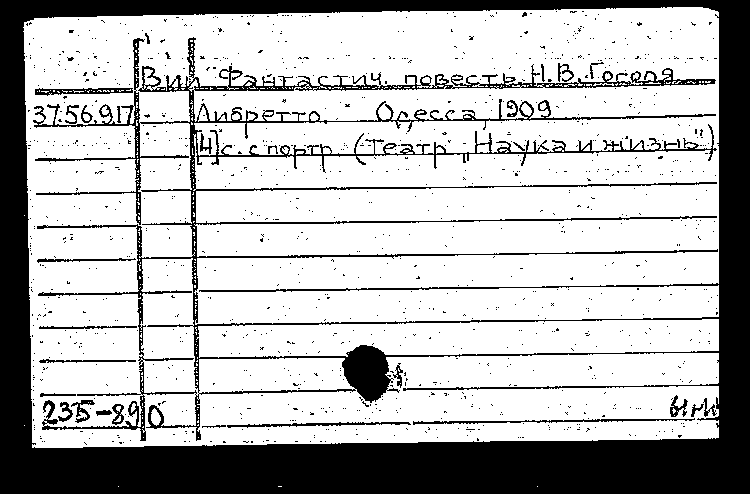 Вий Фантастич. повесть Н.В.Гоголя
37.56.9.17 Либретто. Одесса, 1909
[4]с. с портр (Театр „Наука и жизнь")
235-89